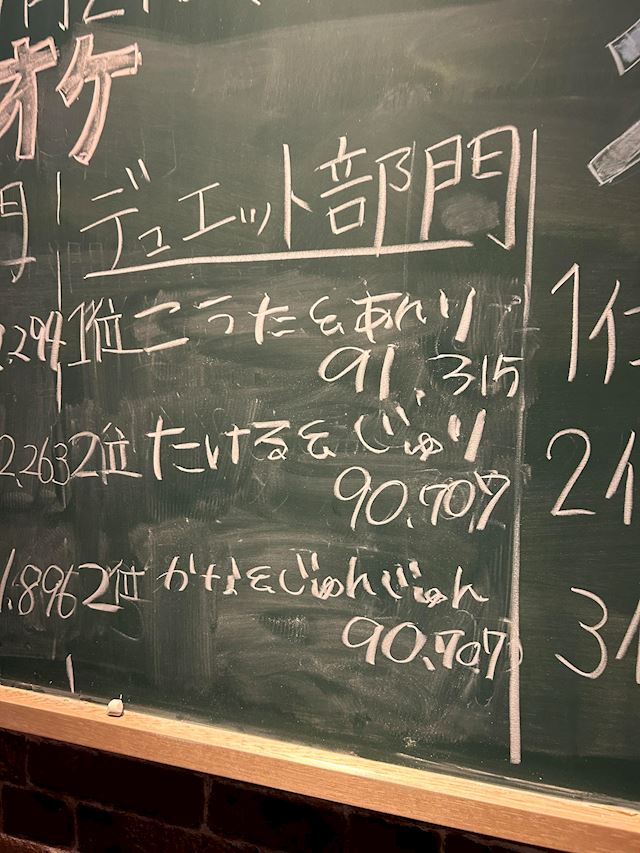 オケ
デュエット部門
1位 こうた&あんり
91.315
2位 たける&じゅり
90.707
2位 かな&じゅんじゅん
90.707
.294
2.263
1.896
1位
2
3